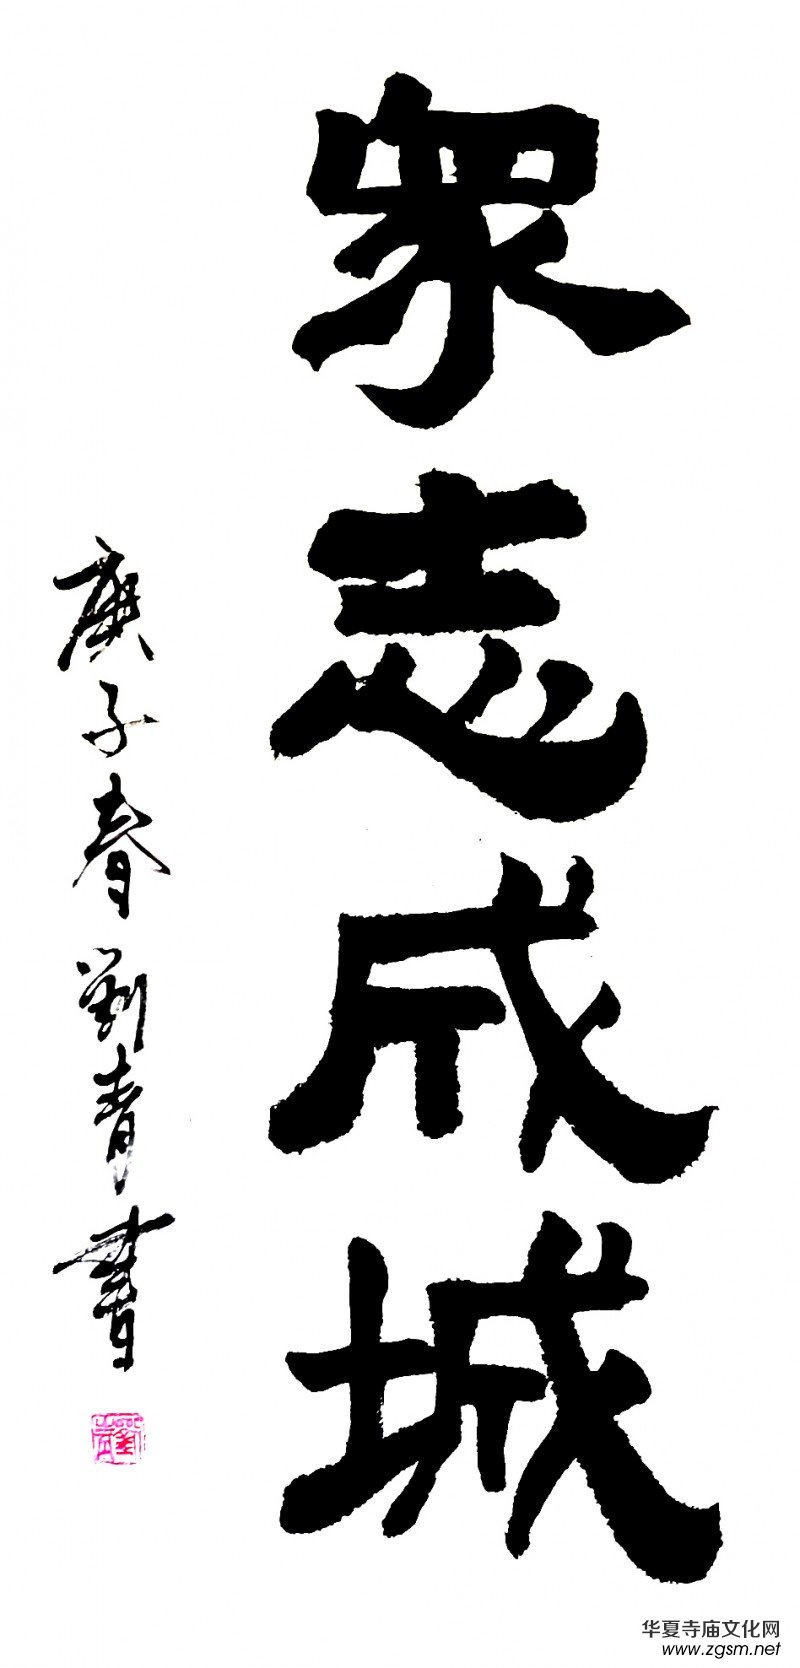 眾志成城
庚子春劉青書
华夏寺庙文化网
www.zgsm.net